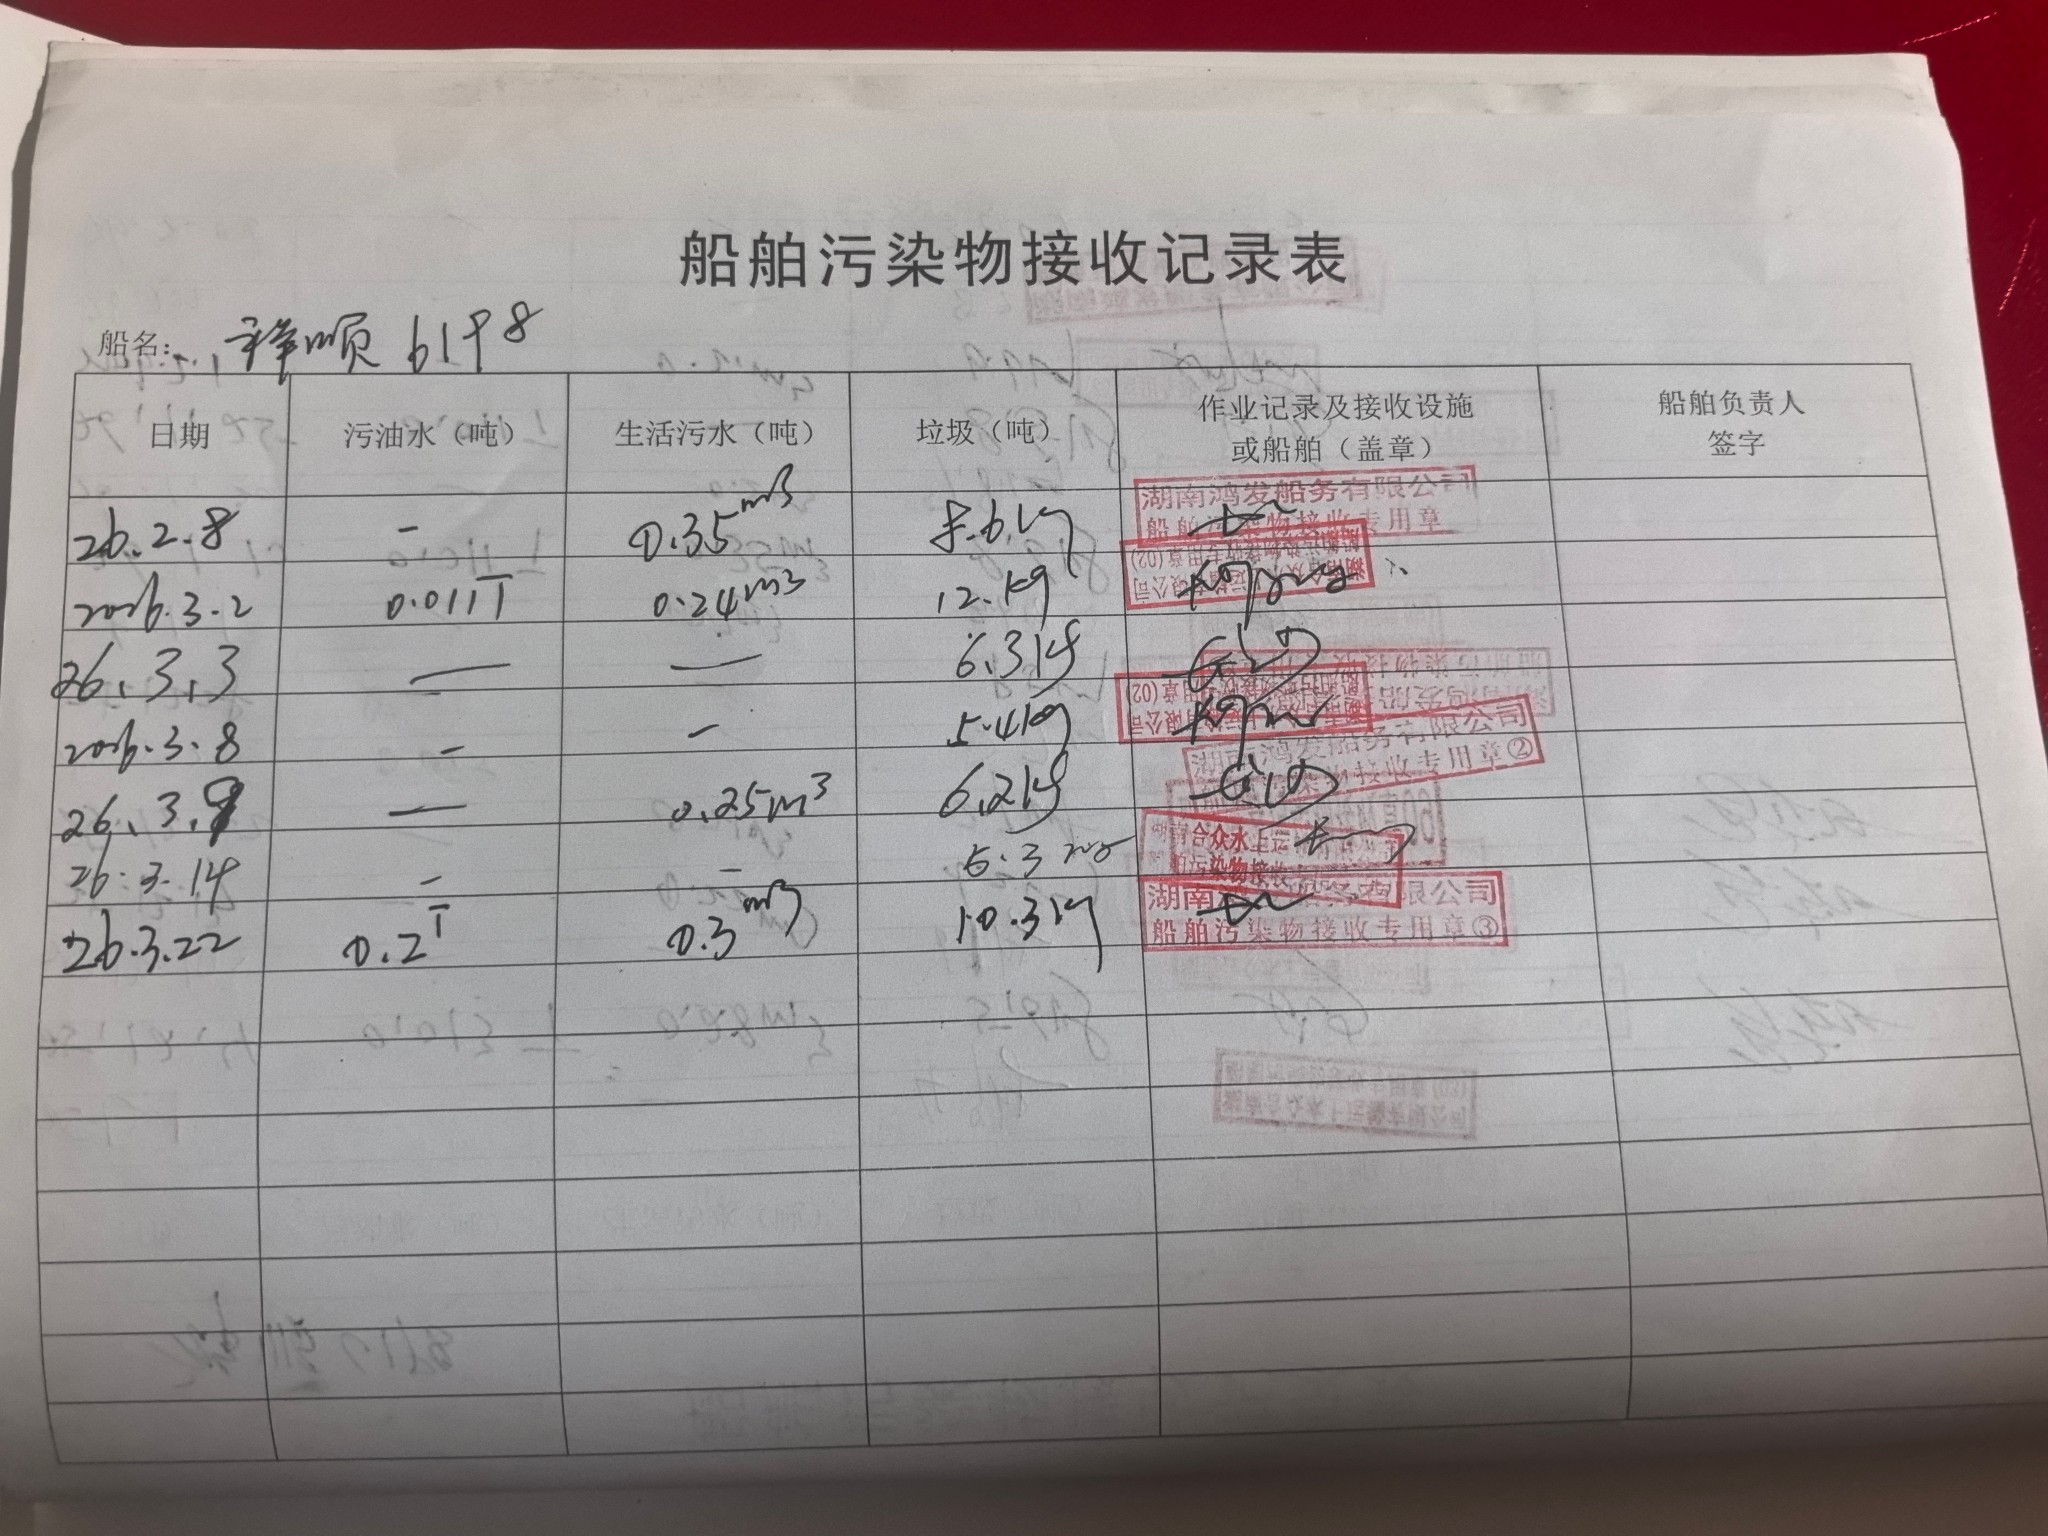 船舶污染物接收记录表
船名: 祥顺 6198
日期 污油水（吨） 生活污水（吨） 垃圾（吨） 作业记录及接收设施或船舶（盖章） 船舶负责人签字
26.2.8 - 0.35m3 8.6kg 湖南鸿发船务有限公司 船舶污染物接收专用章
2026.3.2 0.011T 0.24m3 12.kg
26.3.3 — — 6.3kg
2026.3.8 - - 5.4kg
26.3.9 — 0.25m3 6.2kg 湖南鸿发船务有限公司 接收专用章②
26.3.14 - - 5.3 湖南合众水上运 船舶污染物接收
26.3.22 0.2T 0.3m3 10.3kg 湖南 有限公司 船舶污染物接收专用章③